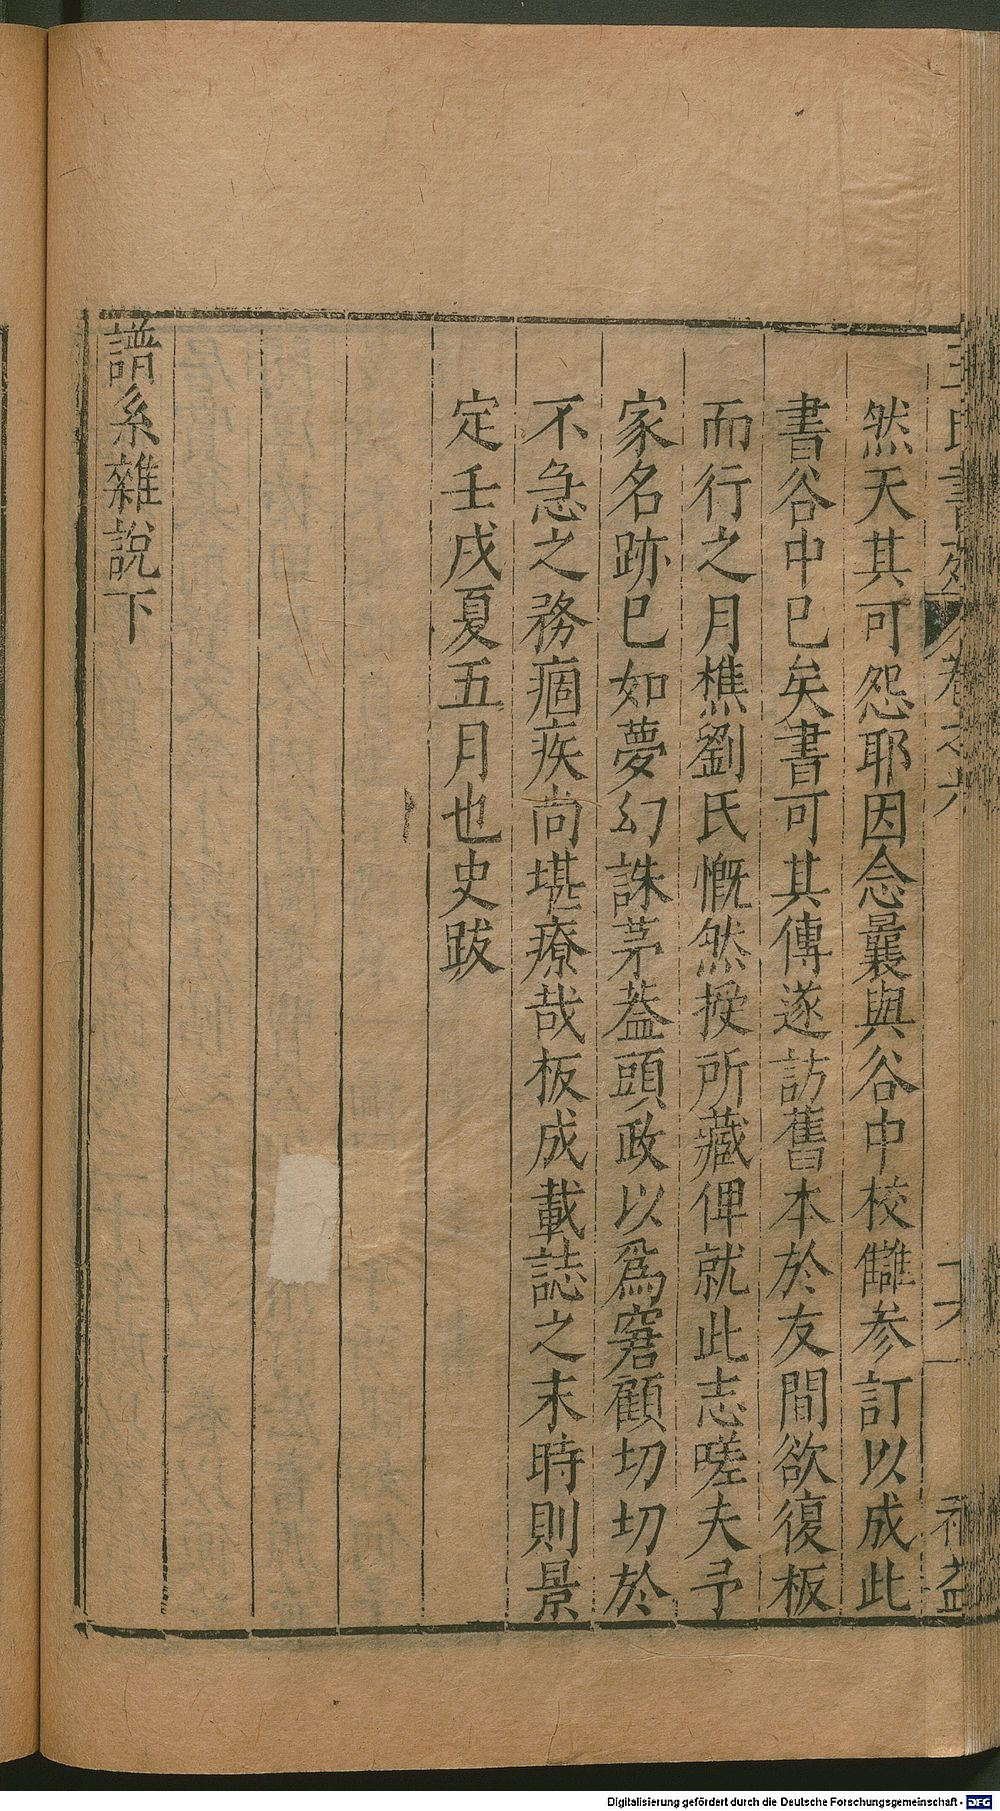 王氏書苑 卷之六
然天其可怨耶因念曩與谷中校讎參訂以成此
書谷中已矣書可其傳遂訪舊本於友間欲復板
而行之月樵劉氏慨然授所藏俾就此志嗟夫予
家名跡已如夢幻誅茅蓋頭政以爲窘顧切切於
不急之務痼疾尚堪療哉板成載誌之末時則景
定壬戌夏五月也史跋
譜系雜說下
Digitalisierung gefördert durch die Deutsche Forschungsgemeinschaft - DFG